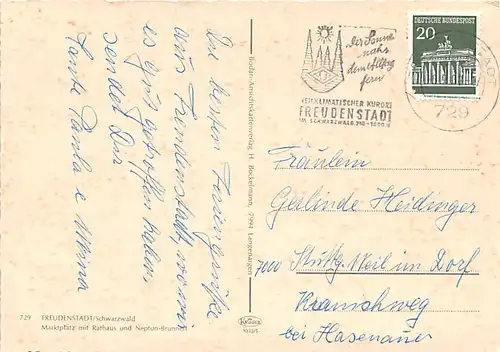 Die besten Feriengrüße
aus Freudenstadt, wo wir
es gut getroffen haben,
sendet Dir
Tante Paula
729 FREUDENSTADT/Schwarzwald
Marktplatz mit Rathaus und Neptun-Brunnen
Bodan-Ansichtskartenverlag H. Bockelmann, 7991 Langenargen
Krüger
Der Sonne
nah
dem Alltag
fern
HEILKLIMATISCHER KURORT
FREUDENSTADT
IM SCHWARZWALD
DEUTSCHE BUNDESPOST
20
729
Fräulein
Gerlinde Heidinger
7000 Stuttg. Weil im Dorf
Kranichweg
bei Hasenauer